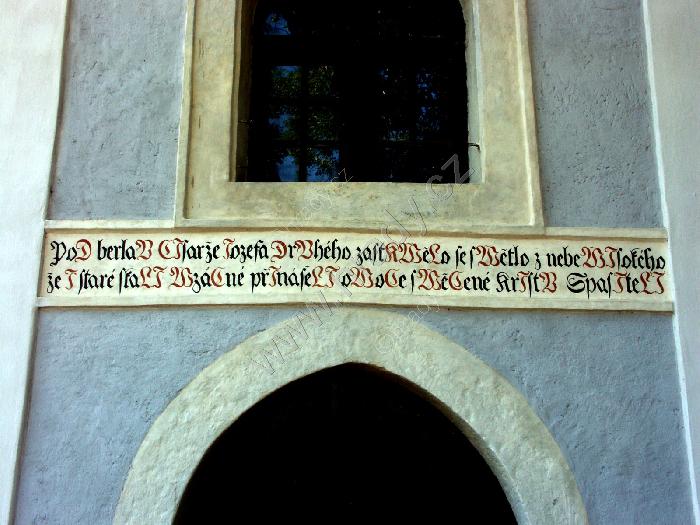 PoD berlaV CIsarže Iozefa DrVhého zastKWěLo se sWětlo z nebe WIsokého
že I staré skaLI WzáCné přInaseLI oWoCe sWěCené KrIstV SpasIteLI